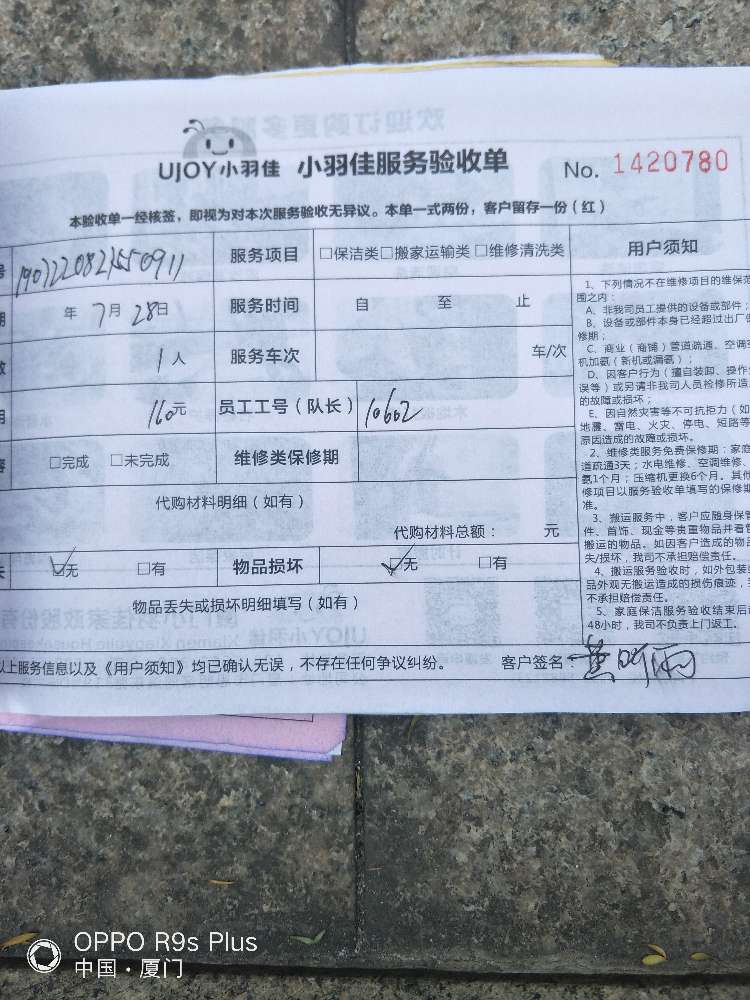 UJOY小羽佳 小羽佳服务验收单 No. 1420780
本验收单一经核签，即视为对本次服务验收无异议。本单一式两份，客户留存一份（红）
号 服务项目 □保洁类□搬家运输类□维修清洗类 用户须知
期 年 7月 28日 服务时间 自 至 止
数 1人 服务车次 车/次
用 160元 员工工号（队长） 10602
容 □完成 □未完成 维修类保修期
代购材料明细（如有）
代购材料总额： 元
失 ☑无 □有 物品损坏 ☑无 □有
物品丢失或损坏明细填写（如有）
以上服务信息以及《用户须知》均已确认无误，不存在任何争议纠纷。 客户签名：
1、下列情况不在维修项目的维保范
围之内：
A、非我司员工提供的设备或部件；
B、设备或部件本身已经超过出厂保
修期；
C、商业（商铺）管道疏通、空调
机加氨（新机或漏氨）；
D、因客户行为（擅自装卸、操作
误等）或另请非我司人员检修所造
的故障或损坏；
E、因自然灾害等不可抗拒力（如
地震、雷电、火灾、停电、短路等
原因造成的故障或损坏。
2、维修类服务免费保修期：家庭
道疏通3天；水电维修、空调维修、
氨1个月；压缩机更换6个月。其他
修项目以服务验收单填写的保修期
准。
3、搬运服务中，客户应随身保管
件、首饰、现金等贵重物品并看管
搬运的物品。如因客户造成的物品
失/损坏，我司不承担赔偿责任。
4、搬运服务验收时，如外包装
品外观无搬运造成的损伤痕迹，
不承担赔偿责任。
5、家庭保洁服务验收结束后
48小时，我司不负责上门返工。
OPPO R9s Plus
中国·厦门